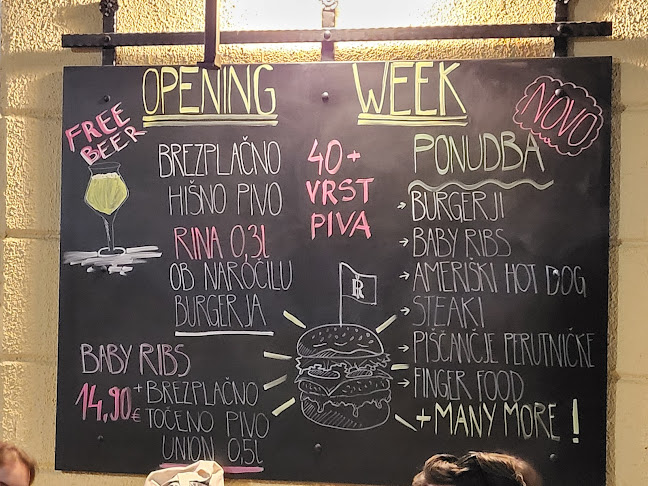 OPENING WEEK
FREE
BEER
BREZPLAČNO
HIŠNO PIVO
RINA 0,3l
OB NAROČILU
BURGERJA
BABY RIBS
14,90€
+ BREZPLAČNO
TOČENO PIVO
UNION 0,5l
40+
VRST
PIVA
R
NOVO
PONUDBA
→ BURGERJI
→ BABY RIBS
→ AMERIŠKI HOT DOG
→ STEAKI
→ PIŠČANČJE PERUTNIČKE
→ FINGER FOOD
+ MANY MORE!